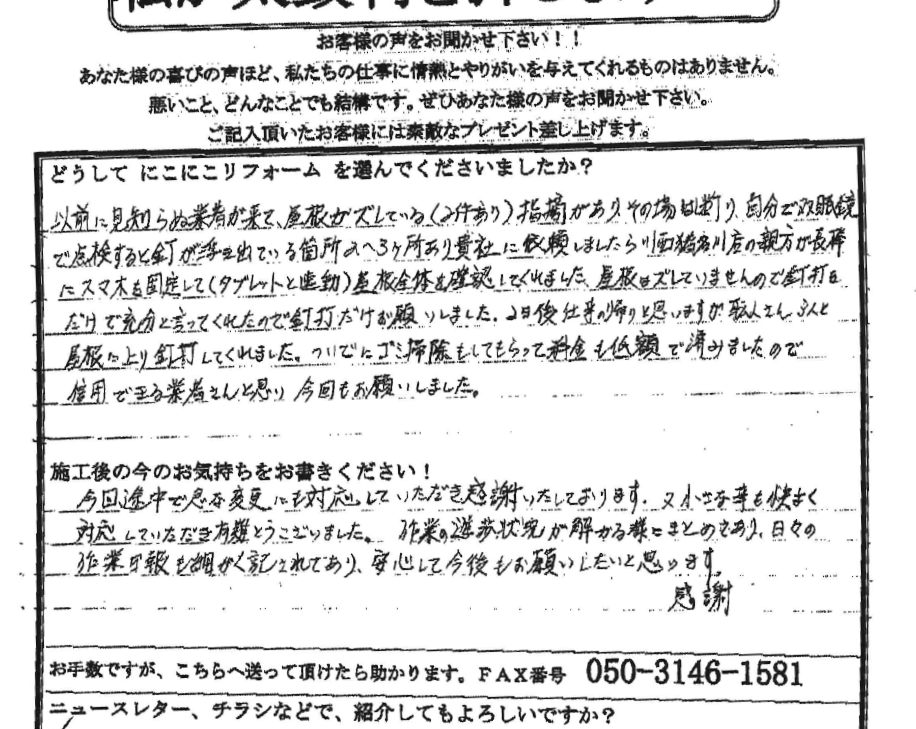 お客様の声をお聞かせ下さい！！
あなた様の喜びの声ほど、私たちの仕事に情熱とやりがいを与えてくれるものはありません。
悪いこと、どんなことでも結構です。ぜひあなた様の声をお聞かせ下さい。
ご記入頂いたお客様には素敵なプレゼント差し上げます。
どうして にこにこリフォーム を選んでくださいましたか？
以前に見知らぬ業者が来て、屋根がズレている(2件あり)指摘がありその場は断り、自分で双眼鏡
で点検すると釘が浮き出ている箇所2へ3ヶ所あり貴社に依頼しましたら川西猪名川店の親方が長棒
にスマホを固定して(タブレットと連動)屋根全体を確認してくれました、屋根はズレていませんので釘打ち
だけで充分と言ってくれたので釘打だけお願いしました。2日後仕事の帰りと思いますが職人さん3人と
屋根に上り釘打してくれました。ついでにゴミ掃除もしてもらって料金も低額で済みましたので
信用できる業者さんと思い今回もお願いしました。
施工後の今のお気持ちをお書きください！
今回途中で急な変更にも対応していただき感謝いたしております。又小さな事も快よく
対応していただき有難とうございました。作業の進歩状況が解かる様にまとめてあり、日々の
作業日報も細かく記されてあり、安心して今後もお願いしたいと思います。
感謝
お手数ですが、こちらへ送って頂けたら助かります。FAX番号 050-3146-1581
ニュースレター、チラシなどで、紹介してもよろしいですか？